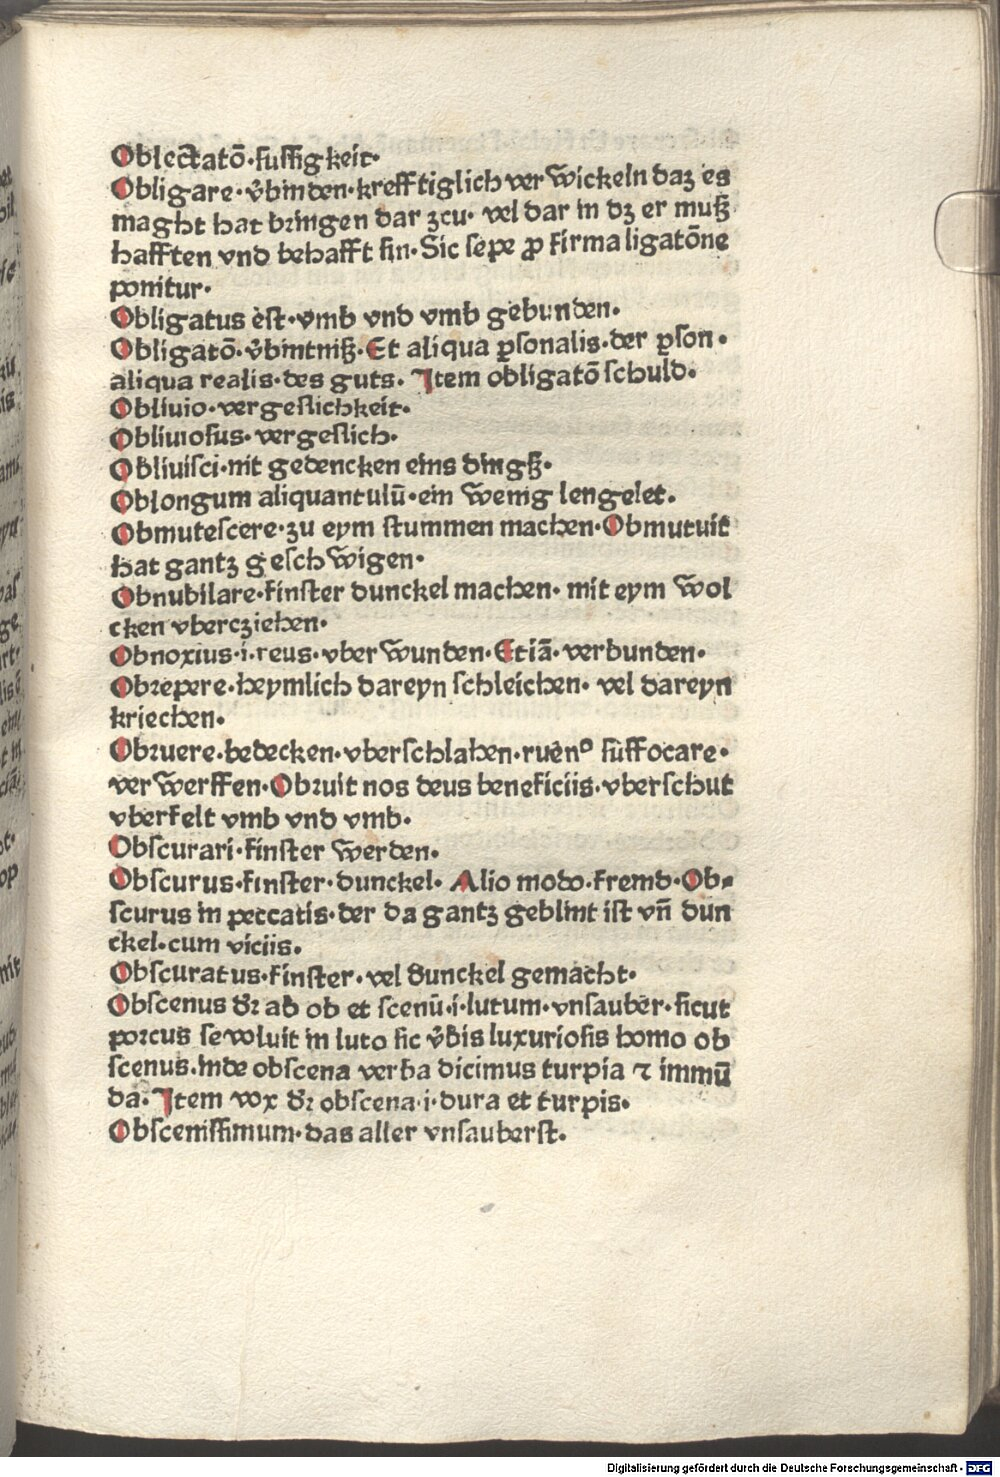 Oblectatō·ſuſſigkeit·
Obligare·v̄binden·krefftiglich ver wickeln daʒ es
maght hat bringen dar ʒcu· vel dar in dʒ er muß
hafften vnd behafft ſin·Sic ſepe ꝓ firma ligatōne
ponitur·
Obligatus ēſt·vmb vnd vmb gebunden·
Obligatō·v̄bintniß·Et aliqua ꝑſonalis·der ꝑſon·
aliqua realis·des guts· Item obligatō ſchuld·
Obliuio·vergeſlichkeit·
Obliuioſus·vergeſlich·
Obliuiſci·nit gedencken eins dingß·
Oblongum aliquantulū·ein wenig lengelet·
Obmuteſcere·zu eym ſtummen machen·Obmutuit
hat gantʒ geſchwigen·
Obnubilare·finſter dunckel machen· mit eym wol
cken vbercʒiehen·
Obnoxius·i·reus·vber wunden·Etiā·verbunden·
Obꝛepere·heymlich dareyn ſchleichen· vel dareyn
kriechen·
Obꝛuere·bedecken·vberſchlahen·ruēnº ſuffocare·
ver werffen·Obꝛuit nos deus beneficiis·vberſchut
vberfelt vmb vnd vmb·
Obſcurari·finſter werden·
Obſcurus·finſter·dunckel· Alio modo·fremd·Ob⸗
ſcurus in peccatis·der da gantʒ geblint iſt vn̄ dun
ckel·cum viciis·
Obſcuratus·finſter·vel dunckel gemacht·
Obſcenus dꝛ̄ ab ob et ſcenū·i·lutum·vnſauber·ſicut
poꝛcus ſe voluit in luto ſic v̄bis luxurioſis homo ob
ſcenus·inde obſcena verba dicimus turpia ⁊ immū
da·Item vox dꝛ̄ obſcena·i·dura et turpis·
Obſceniſſimum·das aller vnſauberſt·
Digitalisierung gefördert durch die Deutsche Forschungsgemeinschaft - DFG